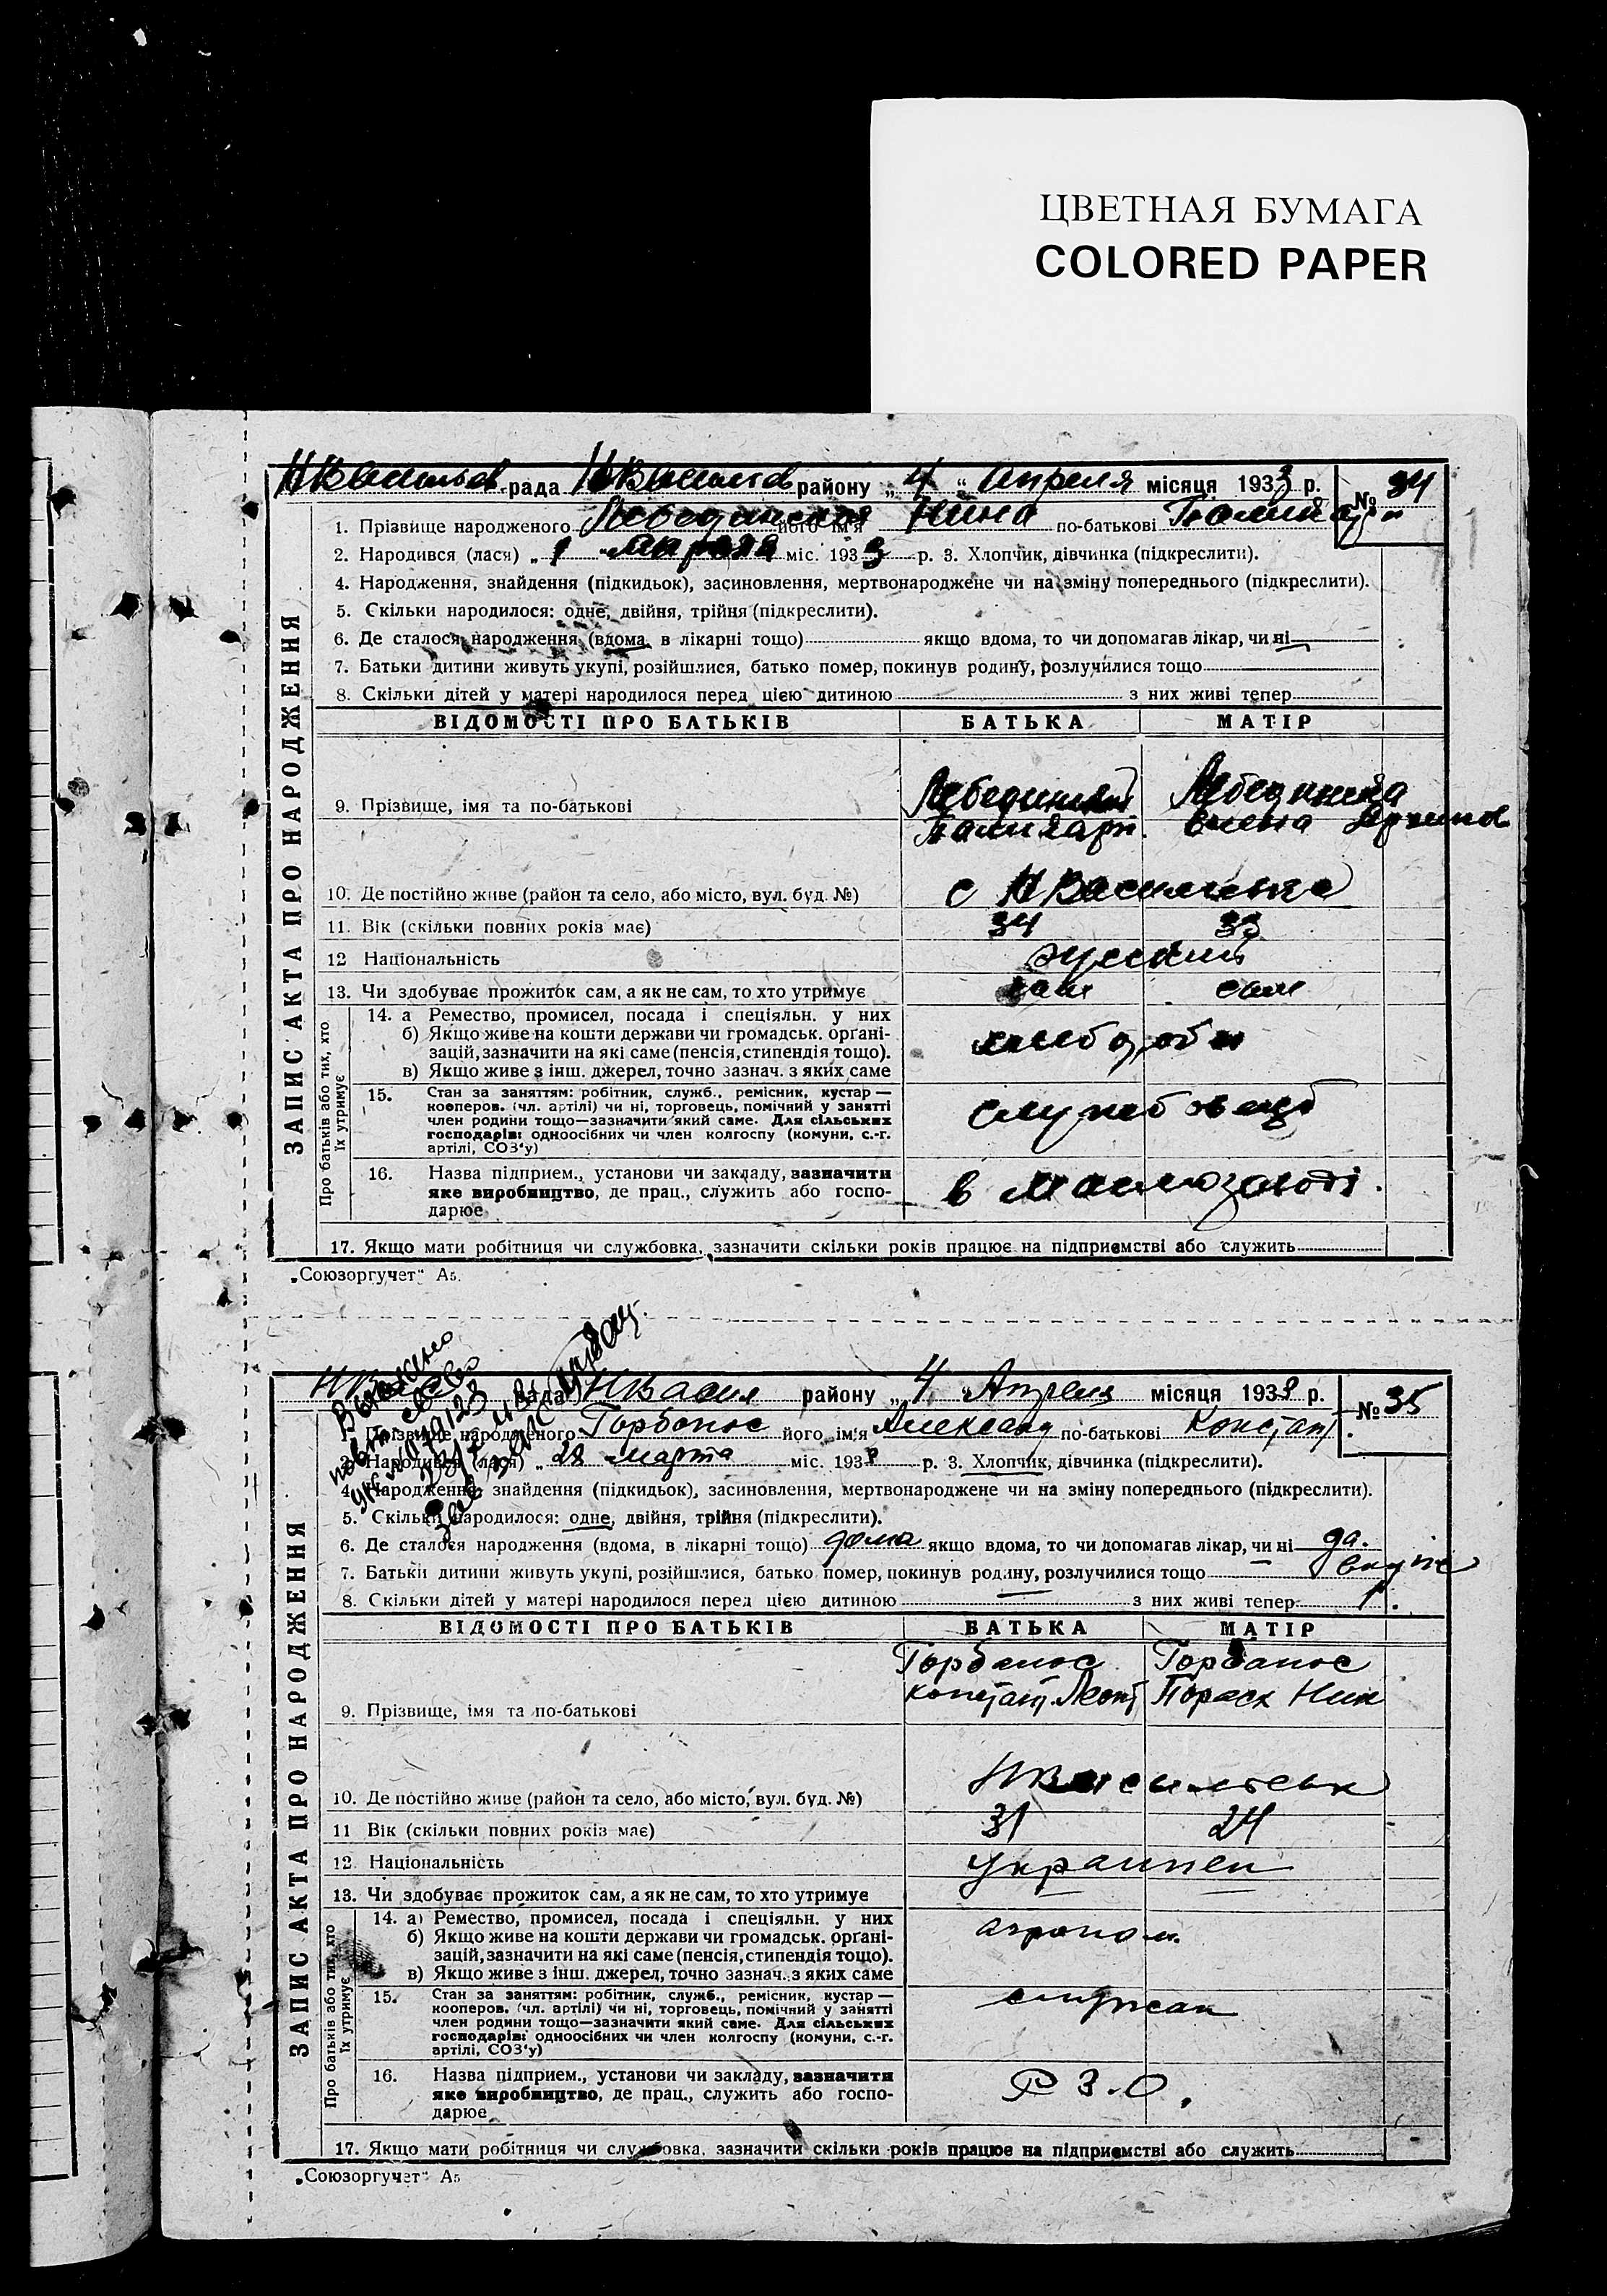 ЦВЕТНАЯ БУМАГА
COLORED PAPER
рада району „4“ Апреля місяця 1933 р. № 34
1. Прізвище народженого Лебединская його ім'я Нина по-батькові
2. Народився (лася) „1“ міс. 1933 р. 3. Хлопчик, дівчинка (підкреслити).
4. Народження, знайдення (підкидьок), засиновлення, мертвонароджене чи на зміну попереднього (підкреслити).
5. Скільки народилося: одне, двійня, трійня (підкреслити).
6. Де сталося народження (вдома, в лікарні тощо) якщо вдома, то чи допомагав лікар, чи ні
7. Батьки дитини живуть укупі, розійшлися, батько помер, покинув родину, розлучилися тощо
8. Скільки дітей у матері народилося перед цією дитиною з них живі тепер
ЗАПИС АКТА ПРО НАРОДЖЕННЯ
ВІДОМОСТІ ПРО БАТЬКІВ БАТЬКА МАТІР
9. Прізвище, імя та по-батькові
10. Де постійно живе (район та село, або місто, вул. буд. №) с
11. Вік (скільки повних років має) 34 33
12 Національність
13. Чи здобуває прожиток сам, а як не сам, то хто утримує сам сам
Про батьків або тих, хто їх утримує
14. а Ремество, промисел, посада і спеціяльн. у них
б) Якщо живе на кошти держави чи громадськ. орґані-
зацій, зазначити на які саме (пенсія, стипендія тощо).
в) Якщо живе з інш. джерел, точно зазнач. з яких саме
15. Стан за заняттям: робітник, служб., ремісник, кустар —
кооперов. (чл. артілі) чи ні, торговець, помічний у занятті
член родини тощо—зазначити який саме. Для сільських
господарів: одноосібних чи член колгоспу (комуни, с.-г.
артілі, СОЗ'у)
16. Назва підприєм., установи чи закладу, зазначити
яке виробництво, де прац., служить або госпо-
дарює
в
17. Якщо мати робітниця чи службовка, зазначити скільки років працює на підприємстві або служить
„Союзоргучет“ А5.
рада району „4“ Апреля місяця 193 р. № 35
Прізвище народженого Горбонос його ім'я Александ по-батькові Констант
2. Народився (лася) „28 марта міс. 193 р. 3. Хлопчик, дівчинка (підкреслити).
4. Народження, знайдення (підкидьок), засиновлення, мертвонароджене чи на зміну попереднього (підкреслити).
5. Скільки народилося: одне, двійня, трійня (підкреслити).
6. Де сталося народження (вдома, в лікарні тощо) дома якщо вдома, то чи допомагав лікар, чи ні да.
7. Батьки дитини живуть укупі, розійшлися, батько помер, покинув родину, розлучилися тощо вкупе
8. Скільки дітей у матері народилося перед цією дитиною — з них живі тепер 1.
ЗАПИС АКТА ПРО НАРОДЖЕННЯ
ВІДОМОСТІ ПРО БАТЬКІВ БАТЬКА МАТІР
Горбонос Горбанос
Констант Леонт Параск Ник
9. Прізвище, імя та по-батькові
10. Де постійно живе (район та село, або місто, вул. буд. №)
11 Вік (скільки повних років має) 31 24
12 Національність украинец
13. Чи здобуває прожиток сам, а як не сам, то хто утримує
Про батьків або тих, хто їх утримує
14. а) Ремество, промисел, посада і спеціяльн. у них
агроном
б) Якщо живе на кошти держави чи громадськ. орґані-
зацій, зазначити на які саме (пенсія, стипендія тощо).
в) Якщо живе з інш. джерел, точно зазнач. з яких саме
15. Стан за заняттям: робітник, служб., ремісник, кустар —
кооперов. (чл. артілі) чи ні, торговець, помічний у занятті
член родини тощо—зазначити який саме. Для сільських
господарів: одноосібних чи член колгоспу (комуни, с.-г.
артілі, СОЗ'у)
16. Назва підприєм., установи чи закладу, зазначити
яке виробництво, де прац., служить або госпо-
дарює
Р З. О.
17. Якщо мати робітниця чи службовка, зазначити скільки років працює на підприємстві або служить
„Союзоргучет“ А5